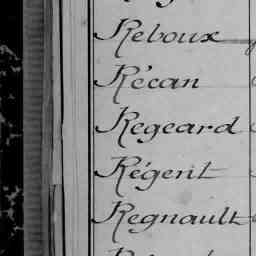 Reboux
Récan
Regeard
Régent
Regnault